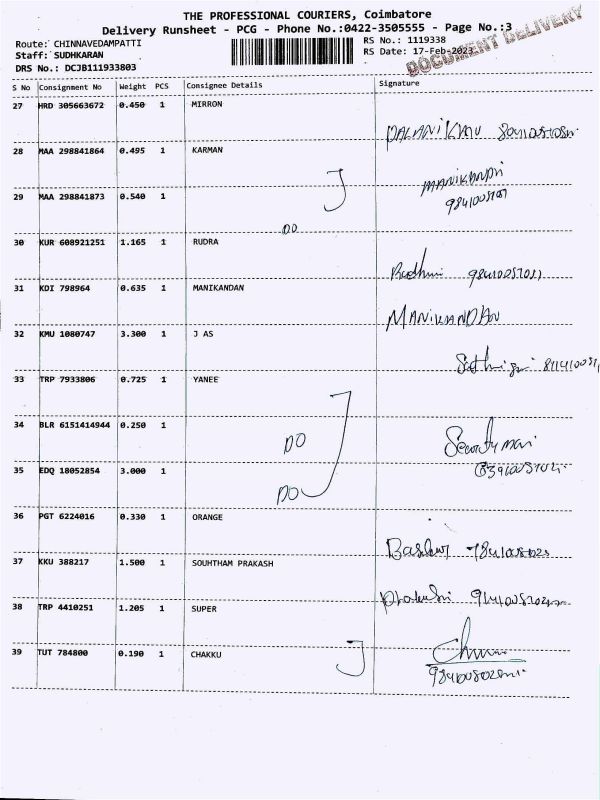 THE PROFESSIONAL COURIERS, Coimbatore
Delivery Runsheet - PCG - Phone No.:0422-3505555 - Page No.:3
DOCUMENT DELIVERY
Route: CHINNAVEDAMPATTI
RS No.: 1119338
Staff: SUDHKARAN
RS Date: 17-Feb-2023
DRS No.: DCJB111933803
S No Consignment No Weight PCS Consignee Details Signature
27 HRD 305663672 0.450 1 MIRRON
28 MAA 298841864 0.495 1 KARMAN
MANIKANDN
29 MAA 298841873 0.540 1
DO
30 KUR 608921251 1.165 1 RUDRA
31 KDI 798964 0.635 1 MANIKANDAN
MANIKANDAN
32 KMU 1080747 3.300 1 J AS
33 TRP 7933806 0.725 1 YANEE
34 BLR 6151414944 0.250 1
DO
35 EDQ 18052854 3.000 1
DO
36 PGT 6224016 0.330 1 ORANGE
37 KKU 388217 1.500 1 SOUHTHAM PRAKASH
38 TRP 4410251 1.205 1 SUPER
39 TUT 784800 0.190 1 CHAKKU